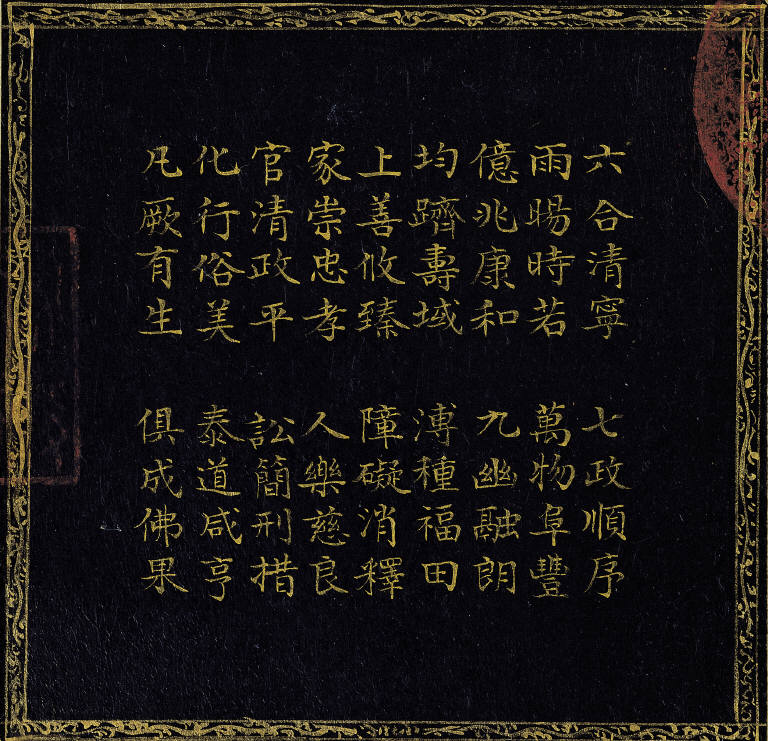 六合清寧 七政順序
雨暘時若 萬物阜豐
億兆康和 九幽融朗
均躋壽域 溥種福田
上善攸臻 障礙消釋
家崇忠孝 人樂慈良
官清政平 訟簡刑措
化行俗美 泰道咸亨
凡厥有生 俱成佛果